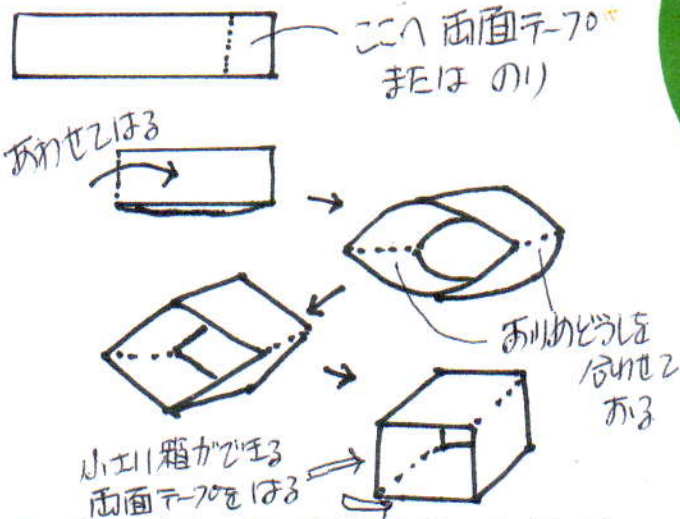 ここへ 両面テープ
または のり
あわせてはる
おりめどうしを
合わせて
おる
小さい箱ができる
両面テープをはる